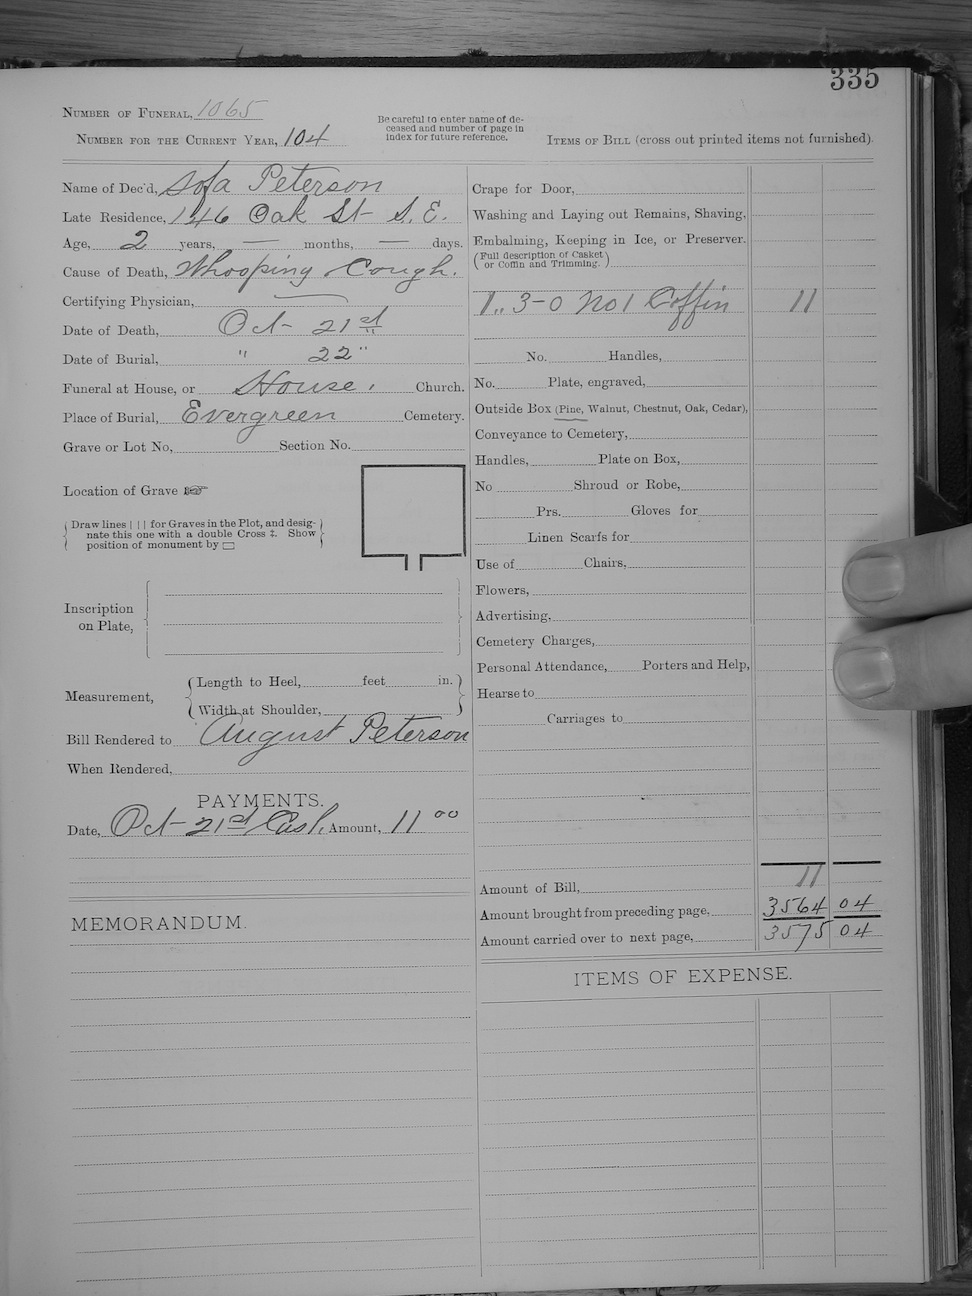 335
Number of Funeral, 1065
Number for the Current Year, 104
Be careful to enter name of de-
ceased and number of page in
index for future reference.
Items of Bill (cross out printed items not furnished).
Name of Dec'd, Sofa Peterson
Late Residence, 146 Oak St S. E.
Age, 2 years, — months, — days.
Cause of Death, Whooping Cough.
Certifying Physician, —
Date of Death, Oct- 21st
Date of Burial, " 22"
Funeral at House, or House. Church.
Place of Burial, Evergreen Cemetery.
Grave or Lot No, Section No.
Location of Grave ☞
Draw lines | | | for Graves in the Plot, and desig-
nate this one with a double Cross ‡. Show
position of monument by ▭
Inscription
on Plate,
Measurement,
Length to Heel, feet in.
Width at Shoulder,
Bill Rendered to August Peterson
When Rendered,
PAYMENTS.
Date, Oct- 21st Cash, Amount, 11 00
MEMORANDUM.
Crape for Door,
Washing and Laying out Remains, Shaving,
Embalming, Keeping in Ice, or Preserver.
(Full description of Casket
or Coffin and Trimming.)
1.. 3-0 No 1 Coffin 11
No. Handles,
No. Plate, engraved,
Outside Box (Pine, Walnut, Chestnut, Oak, Cedar),
Conveyance to Cemetery,
Handles, Plate on Box,
No Shroud or Robe,
Prs. Gloves for
Linen Scarfs for
Use of Chairs,
Flowers,
Advertising,
Cemetery Charges,
Personal Attendance, Porters and Help,
Hearse to
Carriages to
Amount of Bill, 11
Amount brought from preceding page, 3564 04
Amount carried over to next page, 3575 04
ITEMS OF EXPENSE.